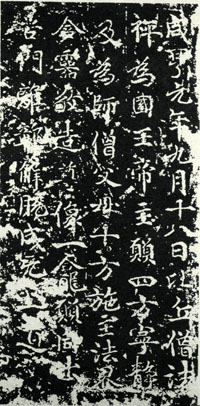 咸亨元年九月十八日比丘僧法
禪為國王帝主願四方寧靜
及為師僧父母十方施主法界
含靈敬造像一龕願同出
苦門離解脫成无上道